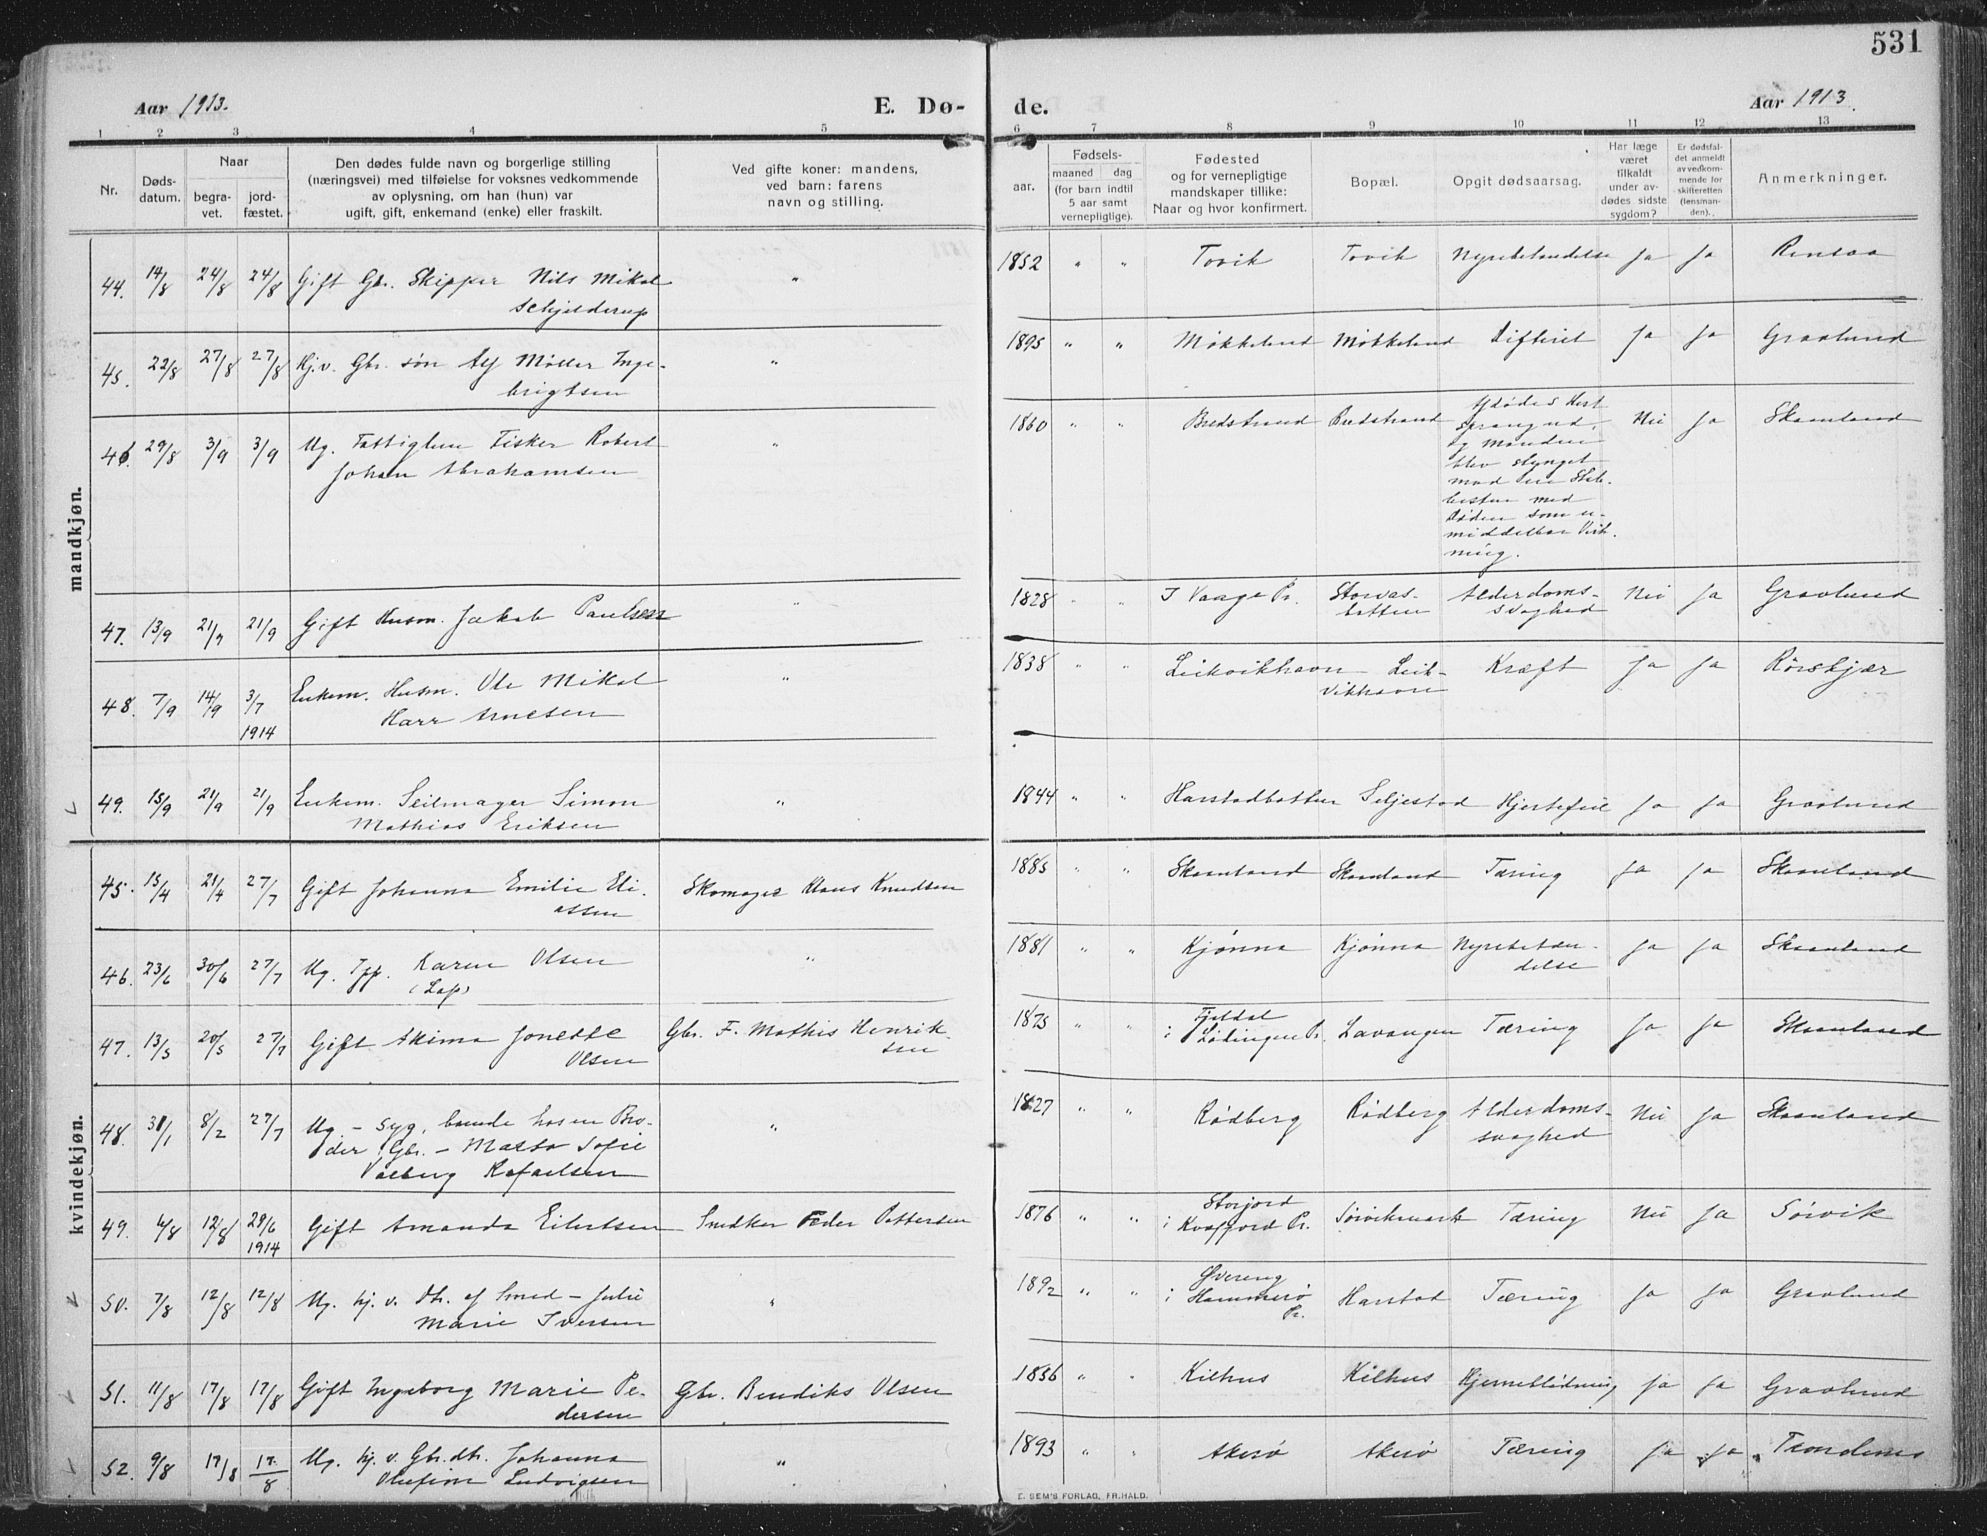 531
Aar 1913.
E. Dø-
de.
Aar 1913.
1 2 3 4 5 6 7 8 9 10 11 12 13
Nr.
Døds-
datum.
Naar
begra-
vet.
jord-
fæstet.
Den dødes fulde navn og borgerlige stilling
(næringsvei) med tilføielse for voksnes vedkommende
av oplysning, om han (hun) var
ugift, gift, enkemand (enke) eller fraskilt.
Ved gifte koner: mandens,
ved barn: farens
navn og stilling.
Fødsels-
aar.
maaned dag
(for barn indtil
5 aar samt
vernepligtige).
Fødested
og for vernepligtige
mandskaper tillike:
Naar og hvor konfirmert.
Bopæl.
Opgit dødsaarsag.
Har læge
været
tilkaldt
under av-
dødes sidste
sygdom?
Er dødsfal-
det anmeldt
av vedkom-
mende for
skifteretten
(lensman-
den).
Anmerkninger.
mandkjøn.
44. 14/8 24/8 24/8 Gift Gbr. Skipper Nils Mikal " 1852 " " Tovik Tovik Nyrebetændelse Ja Ja Rensaa
Schjelderup
45. 22/8 27/8 27/8 Hj.v. Gbr. søn Alf Møller Inge- " 1895 " " Møkkeland Møkkeland Difterit Ja Ja Gravlund
brigtsen
46. 29/8 3/9 3/9 Ug. Fattiglem Fisker Robert " 1860 " " Bredstrand Bredstrand Nei Ja Skaanland
Johan Abrahamsen
og Manden
blev slynget
med Døden som u-
middelbar Virk-
ning.
47. 13/9 21/9 21/9 Gift Husm. Jakob Paulsen " 1828 " " I Vaage Pr. Storvas- Alderdoms- Nei Ja Gravlund
botten svaghed
48. 7/9 14/9 3/7 Enkem. Husm. Ole Mikal " 1838 " " Leikvikhavn Leik- Kræft Ja Ja Rørskjær
1914 Harr Arnesen vikhavn
49. 15/9 21/9 21/9 Enkem. Seilmager Simon " 1844 " " Harstadbotten Seljestad Hjertefeil Ja Ja Gravlund
Mathias Eriksen
kvindekjøn.
45. 15/4 21/4 27/7 Gift Johanna Emilie Eli- Skomager Hans Knudsen 1885 " " Skaanland Skaanland Tæring Ja Ja Skaanland
assen
46. 23/6 30/6 27/7 Ug. Karen Olsen " 1881 " " Kjønna Kjønna Nyrebetæn- Ja Ja Skaanland
(Lap) delse
47. 13/5 20/5 27/7 Gift Akima Jonette Gbr. F. Mathis Henrik- 1875 " " Fjeldal Lavangen Tæring Ja Ja Skaanland
Olsen sen i Lødingen Pr.
48. 31/1 8/2 27/7 Ug – syg, boende hos en Bro- " 1827 " " Rødberg Rødberg Alderdoms- Nei Ja Skaanland
der, Gbr. – Marta Sofie svaghed
Valborg Rafaelsen
49. 4/8 12/8 29/6 Gift Amanda Eilertsen Snedker Peder Pettersen 1876 " " Storjord Sørviksmark Tæring Nei Ja Sørvik
1914 i Kvæfjord Pr.
50. 7/8 12/8 12/8 Ug. hj. v. dtr. af Smed – Julie " 1892 " " Øvereng Harstad Tæring Ja Ja Gravlund
Marie Iversen i Hammerø
Pr.
51. 11/8 17/8 17/8 Gift Ingeborg Marie Pe- Gbr. Bendiks Olsen 1836 " " Kilhus Kilhus Hjerneblødning Ja Ja Gravlund
dersen
52. 9/8 17/8 17/8 Ug. hj. v. Gbr.dtr. Johanna " 1893 " " Akerø Akerø Tæring Ja Ja Trondenes
Olufine Ludvigsen
E. SEM'S FORLAG, FR.HALD.